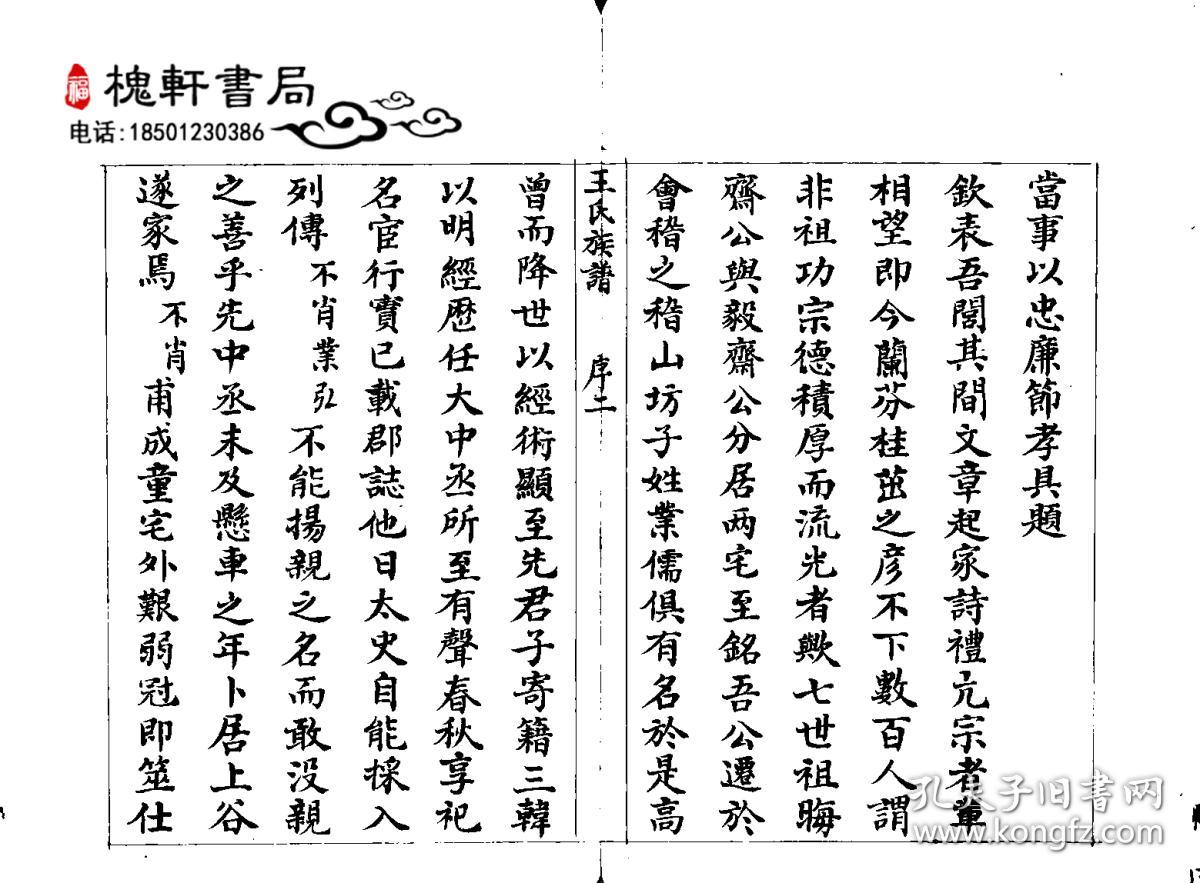 福
槐軒書局
电话:18501230386
當事以忠廉節孝具題
欽表吾閭其間文章起家詩禮亢宗者輩
相望即今蘭芬桂茁之彦不下數百人謂
非祖功宗德積厚而流光者歟七世祖晦
齋公與毅齋公分居两宅至銘吾公遷於
會稽之稽山坊子姓業儒俱有名於是高
王氏族譜 序二
曾而降世以經術顯至先君子寄籍三韓
以明經歷任大中丞所至有聲春秋享祀
名宦行實已載郡誌他日太史自能採入
列傳不肖業弘不能揚親之名而敢没親
之善乎先中丞未及懸車之年卜居上谷
遂家焉不肖甫成童宅外艱弱冠即筮仕
孔夫子旧书网
www.kongfz.com